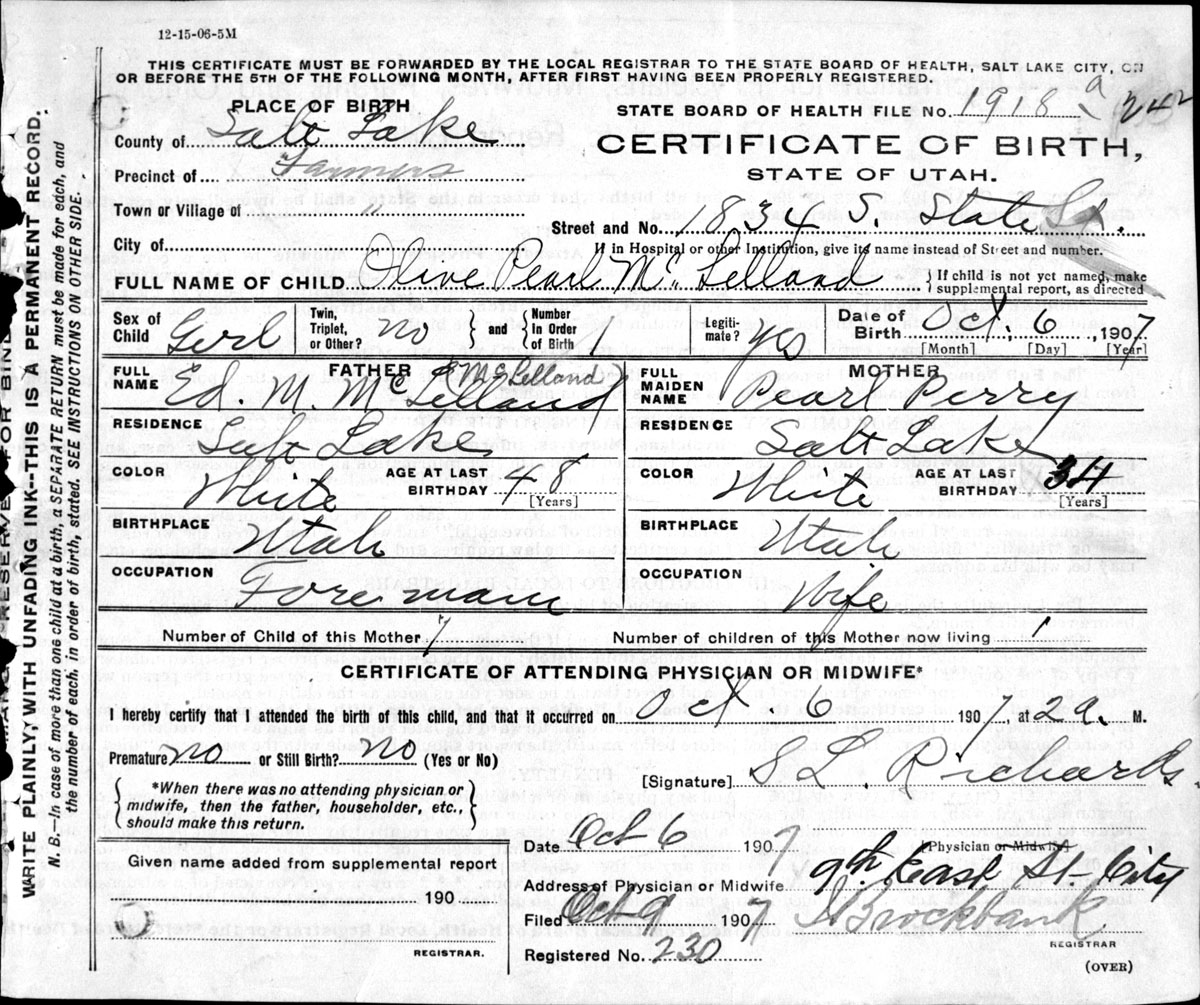 12-15-06-5M
THIS CERTIFICATE MUST BE FORWARDED BY THE LOCAL REGISTRAR TO THE STATE BOARD OF HEALTH, SALT LAKE CITY, ON
OR BEFORE THE 5TH OF THE FOLLOWING MONTH, AFTER FIRST HAVING BEEN PROPERLY REGISTERED.
PLACE OF BIRTH
County of Salt Lake
Precinct of Farmers
Town or Village of "
City of
STATE BOARD OF HEALTH FILE No. 1918 a 242
CERTIFICATE OF BIRTH,
STATE OF UTAH.
Street and No. 1834 S. State St.
If in Hospital or other Institution, give its name instead of Street and number.
FULL NAME OF CHILD Olive Pearl Mc Lelland { If child is not yet named, make
supplemental report, as directed
Sex of Child Gerl Twin, Triplet, or Other? no } and { Number In Order of Birth 1 Legiti- mate? yes Date of Birth Oct 6, 1907
[Month] [Day] [Year]
FATHER
FULL NAME Ed. M. Mc Lelland McLelland
RESIDENCE Salt Lake
COLOR White AGE AT LAST BIRTHDAY 48 [Years]
BIRTHPLACE Utah
OCCUPATION Foreman
MOTHER
FULL MAIDEN NAME Pearl Perry
RESIDENCE Salt Lake
COLOR White AGE AT LAST BIRTHDAY 34 [Years]
BIRTHPLACE Utah
OCCUPATION Wife
Number of Child of this Mother Number of children of this Mother now living 1
CERTIFICATE OF ATTENDING PHYSICIAN OR MIDWIFE*
I hereby certify that I attended the birth of this child, and that it occurred on Oct 6 1907, at 2 a. M.
Premature no or Still Birth? no (Yes or No)
[Signature] S L Richards
{ *When there was no attending physician or
midwife, then the father, householder, etc.,
should make this return. }
[Physician or Midwife]
Given name added from supplemental report
190
REGISTRAR.
Date Oct 6 1907
Address of Physician or Midwife 9th East St City
Filed Oct 9 1907 Brockbank
REGISTRAR
Registered No. 230
(OVER)
RESERVE FOR BIND
WRITE PLAINLY, WITH UNFADING INK--THIS IS A PERMANENT RECORD.
N. B.—In case of more than one child at a birth, a SEPARATE RETURN must be made for each, and
the number of each, in order of birth, stated. SEE INSTRUCTIONS ON OTHER SIDE.